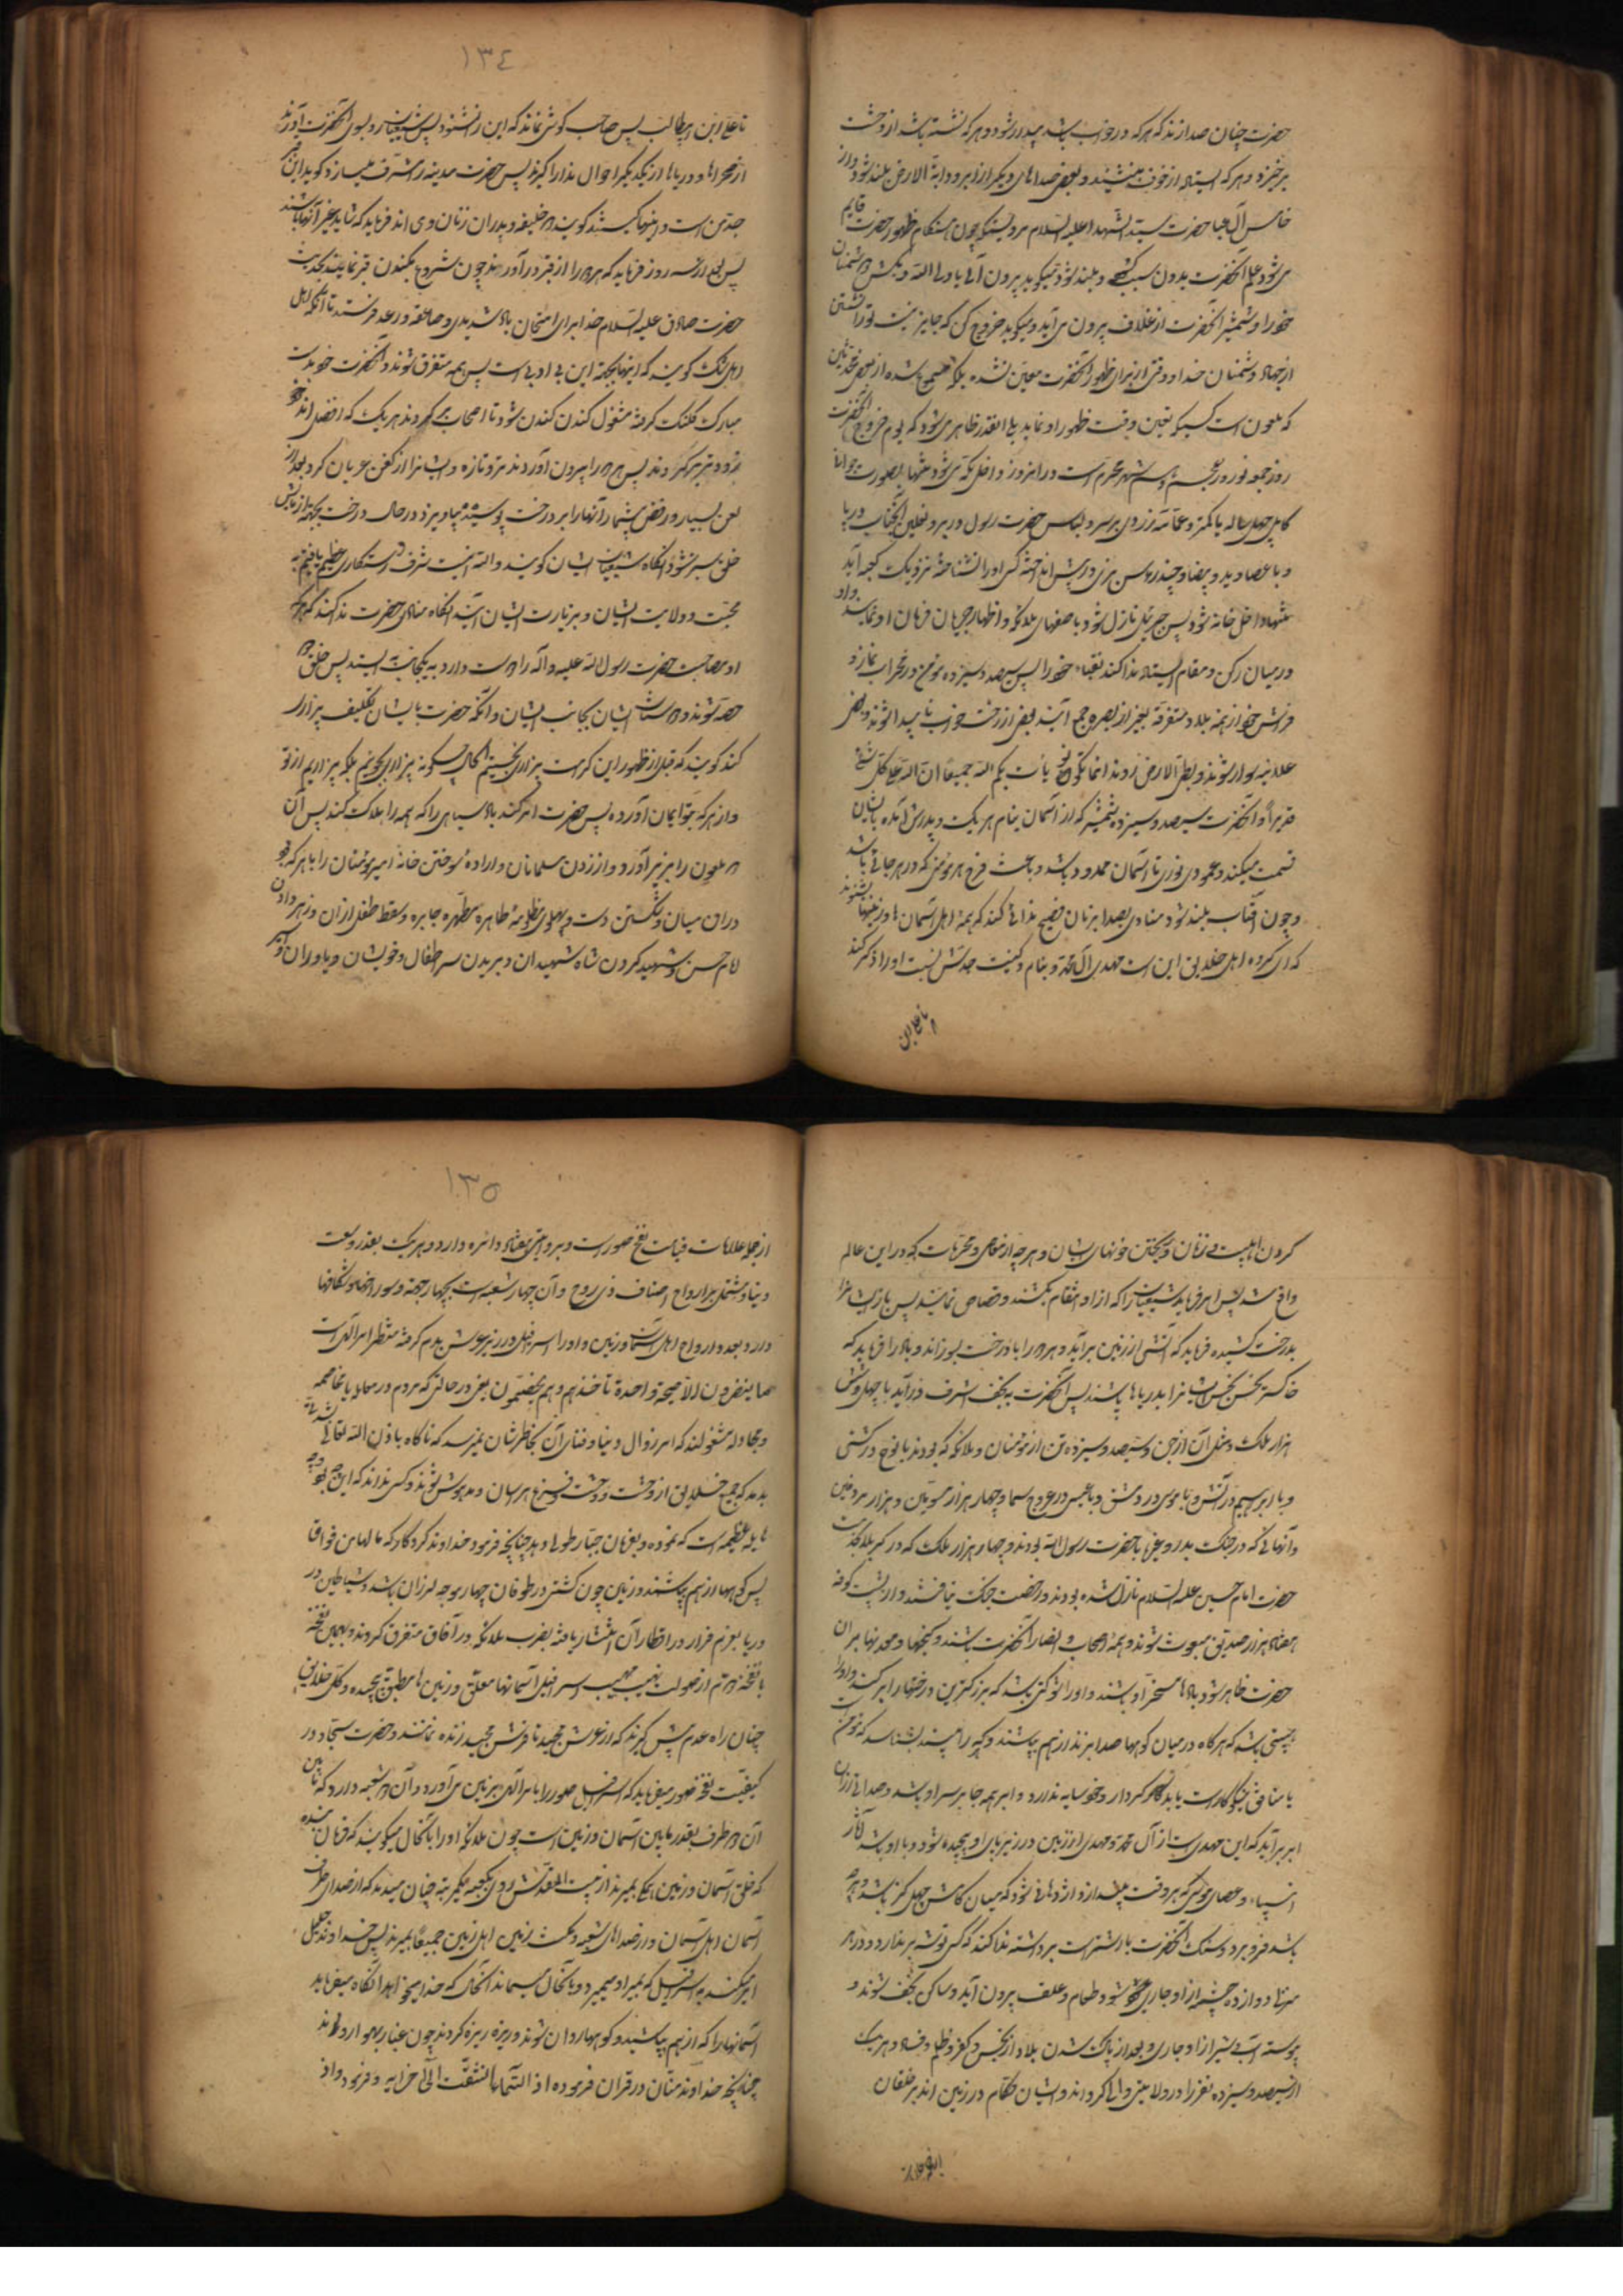 حضرت چنان صدا زند که هر که در خواب باشد بیدار شود و هر که نشسته باشد از وحشت
برخیزد و هر که ایستاده از خوف بنشیند و بعضی صداهای دیگر از ابر و دابة الارض بلند شود و از
خامس آل عبا حضرت سید الشهدا علیه السلام مرویست که چون هنگام ظهور حضرت قایم
می شود علم آنحضرت بدون سبب گشوده و بلند شود و میگوید بیرون آی یا ولی الله و بکش دشمنان
خدا را و شمشیر آنحضرت از غلاف بیرون می آید و میگوید خروج کن که جایز نیست تو را نشستن
از جهاد دشمنان خدا و وقتی از برای ظهور آنحضرت معین نشده بلکه
که ملعون است کسیکه تعیین وقت ظهور او نماید بلی انقدر ظاهر می شود که یوم خروج آنحضرت
روز جمعه نوروز عجم دهم شهر محرم است و در انروز داخل مکه می شود تنها بصورت جوان
کامل چهل ساله یا کمتر و عمامه زردی بر سر و لباس حضرت رسول در بر و نعلین آنجناب در پا
و با عصا و ید و بیضا و چند رؤس بزی در پیش انداخته کسی او را نشناخته نزدیک کعبه آید
تنها داخل خانه شود پس جبرئیل نازل شود با صفهای ملائکه و اظهار جریان فرمان او نماید
در میان رکن و مقام ایستاده ندا کند نقباء خود را پس سیصد و سیزده مومن در محراب نماز و
فراش خود از همه بلاد متفرقه بغیر از بصره جمع آیند بعضی از رخت خواب ناپیدا شوند و بعضی
علانیه سوار شوند و بطی الارض روند اینما تکونوا یات بکم الله جمیعا ان الله علی کل شئ
قدیر و آنحضرت سیصد و سیزده شمشیر که از آسمان بنام هر یک و پدرش آمده بایشان
قسمت میکند و عمودی نوری تا آسمان ممدود باشد و باعث فرح هر مومنی که در هر جائی باشد
و چون آفتاب بلند شود منادی بصدا بزبان فصیح ندائی کند که همه اهل آسمان ها و زمینها بشنوند
که ای گروه اهل خلایق این است مهدی آل محمد و بنام و کنیت جدش نسبت او را ذکر کند
تا علی ابن
١٣٤
تا علی ابن ابیطالب پس صاحب گوشی نماند که این را نشنود پس شیعیان رو بسوی آنحضرت آورند
از صحراها و دریاها از یکدیگر احوال ندا را گیرند پس حضرت مدینه را مشرف میسازد و گوید این قبر
جد من است و اینها کیستند گویند دو خلیفه و پدران زنان وی اند فرماید که شاید غیر آنها باشند
پس بعد از سه روز فرماید که هر دو را از قبر در آورند چون شروع بکندن قبر نمایند بحدیث
حضرت صادق علیه السلام خدا برای امتحان باد شدیدی و صاعقه و رعد فرستد تا آنکه اهل
اهل شک گویند که اینها بجهة این بی ادبی است پس همه متفرق شوند و آنحضرت خود بدست
مبارک کلنگ گرفته مشغول کندن شود تا اصحاب جمع گردند هر یک که افضل اند
زودتر برگردند پس هر دو را بیرون آوردند تر و تازه و ایشانرا از کفن عریان کرد بعد از
لعن بسیار و رفض بیشمار آنها را بر درخت پوسیده بیاویزد در حال درخت بجهة آزمایش
خلق سبز شود آنگاه شیعیان ایشان گویند والله اینست شرف و رستگاری عظیم یافتیم به
محبت و ولایت ایشان و بزیارت ایشان آیند آنگاه منادی حضرت ندا کند که هر که
او مصاحبت حضرت رسول الله علیه و آله را دوست دارد به یکجانب ایستد پس خلق دو
حصه شوند و دوستان ایشان بجانب ایشان و آنگه حضرت بایشان تکلیف بیزاری
کند گویند که قبل از ظهور این کرامت بیزاری نجستیم الحال چگونه بیزاری بجوئیم بلکه بیزاریم از تو
و از هر که بتو ایمان آورده پس حضرت امر کند باد سیاهی را که همه را هلاکت کند پس آن
دو ملعون را بزیر آورد و از زدن سلمانان و اراده سوختن خانه امیر مومنان را با هر که بود
در آن میان و شکستن دست و پهلوی مظلومه طاهره مطهره جابره و سقط طفل از ان و زهر دادن
امام حسن و شهید کردن شاه شهیدان و بریدن سر اطفال و خویشان و یاوران او و اسیر
کردن اهلبیت وی زنان و ریختن خونهای ایشان و هر چه از معاصی و محرمات که در این عالم
واقع شد پس امر فرماید شیعیان را که از او انتقام بکشند و قصاص نمایند پس باز ایشانرا
بدرخت کشیده فرماید که آتشی از زمین برآید و هر دو را با درخت بسوزاند و باد را فرماید که
خاکستر نحس نجس ایشانرا بدریاها پاشند پس آنحضرت به نجف اشرف در آید با چهل و شش
هزار ملک و مثل آن از جن و سیصد و سیزده تن از مومنان و ملائکه که بودند با نوح در کشتی
و با ابراهیم در آتش و با موسی در و با عیسی در عروج سما و چهار هزار مسومین و هزار مردفین
و آنهائی که در جنگ بدر و غیره با حضرت رسول الله بودند و چهار هزار ملک که در کربلا بخدمت
حضرت امام حسین علیه السلام نازل شده بودند و رخصت جنگ نیافتند و از پشت کوفه
هفتاد هزار صدیق مبعوث شوند و همه اصحاب و انصار آنحضرت باشند و گنجها و معدنها بر ان
حضرت ظاهر شود بادها مسخر او باشند و او را قوتی باشد که بزرگترین درختها را بر کند و او را
بحیثی باشد که هر گاه در میان کوهها صدا برزند از هم بپاشند و هر که را ببیند بشناسد که مومن است
یا منافق نیکوکار است یا بد کردار و خود سایه ندارد و ابر همه جا بر سر او باشد و صدائی از ان
ابر برآید که این مهدی است از آل محمد و مهدی و زمین در زیر پای او پیچیده شود و با او باشد آثار
انبیاء و عصای موسی که هر وقت بیندازد اژدهائی شود که میان کامش چهل گز باشد و هر چه
باشد فرو برد و سنگ آنحضرت بار شتر است برداشته ندا کند که کسی توشه برندارد و در هر
منزلها دوازده چشمه از او جاری شود و طعام و علف بیرون آید و ساکن نجف شوند و
پیوسته آب و شیر از او جاری و بعد از پاک شدن بلاد از نجس و کفر و ظلم و فساد و هر یک
از سیصد و سیزده نفر را در ولایتی والی گرداند و ایشان حکام در زمین اند بر خلقان
از جمله علامات
١٣٥
از جمله علامات قیامت نفخ صور است و بروایتی هفتاد دائره دارد و هر یک بقدر وسعت
دنیا مشتمل بر ارواح اصناف ذی روح و آن چهار شعبه است بچهار جهة و سوراخها و شکافها
دارد بعدد ارواح اهل آسمان و زمین و او را اسرافیل در زیر عرش بدم گرفته منتظر امر الهی است
ما ینظرون الا صیحة واحدة تاخذهم و هم یخصمون یعنی در حالتی که مردم در معامله یا مخاصمه
و مجادله مشغولند که امر زوال دنیا و فنای آن بخاطرشان نمیرسد که ناگاه باذن الله تعالی
بدمد که جمیع خلایق از وحشت و وحشت و فزع هراسان و مدهوش شوند و کسی نداند که این چه بود و چه
هایله عظیمه است که نموده و بفرمان جبار طولی دهد چنانچه فرمود خداوند کردگار که ما لها من فواق
پس کوهها از هم بپاشند و زمین چون کشتی در طوفان چهار موجه لرزان باشد و شیاطین در
دریا بعزم فرار در اقطار آن انتشار یافته بضرب ملائکه در آفاق متفرق گردند و بهمین نفخه
یا نفخه دوم از صولت نهیب مهیب اسرافیل آسمانها معلق و زمین ها مطبق پیچیده و کل خلایق
چنان راه عدم پیش گیرند که از عرش مجید تا فرش مجید زنده نمانند و حضرت سجاد در
کیفیت نفخه صور میفرماید که اسرافیل صور را با امر الهی بزمین می آورد و آن دو شعبه دارد که مابین
آن دو طرف بقدر مابین آسمان و زمین است چون ملائکه او را باین حال میگویند که فرمان شده
که خلق آسمان و زمین بکلی بمیرند از بیت المقدس روی بکعبه میکند چنان میدمد که از صدای طرف
آسمان اهل آسمان و از صدای شعبه سمت زمین اهل زمین جمیعا بمیرند پس خداوند جلیل
امر میکند به اسرافیل که بمیر او میمیرد و باین حال میماند آنقدر که خدا میخواهد آنگاه میفرماید
آسمانها را که از هم بپاشید و کوهها روان شوند و ریزه ریزه گردند چون غبار بهوا روند
چنانچه خداوند منان در قران فرموده اذا السماء انشقت الی آخر ایه و فرمود و اذا